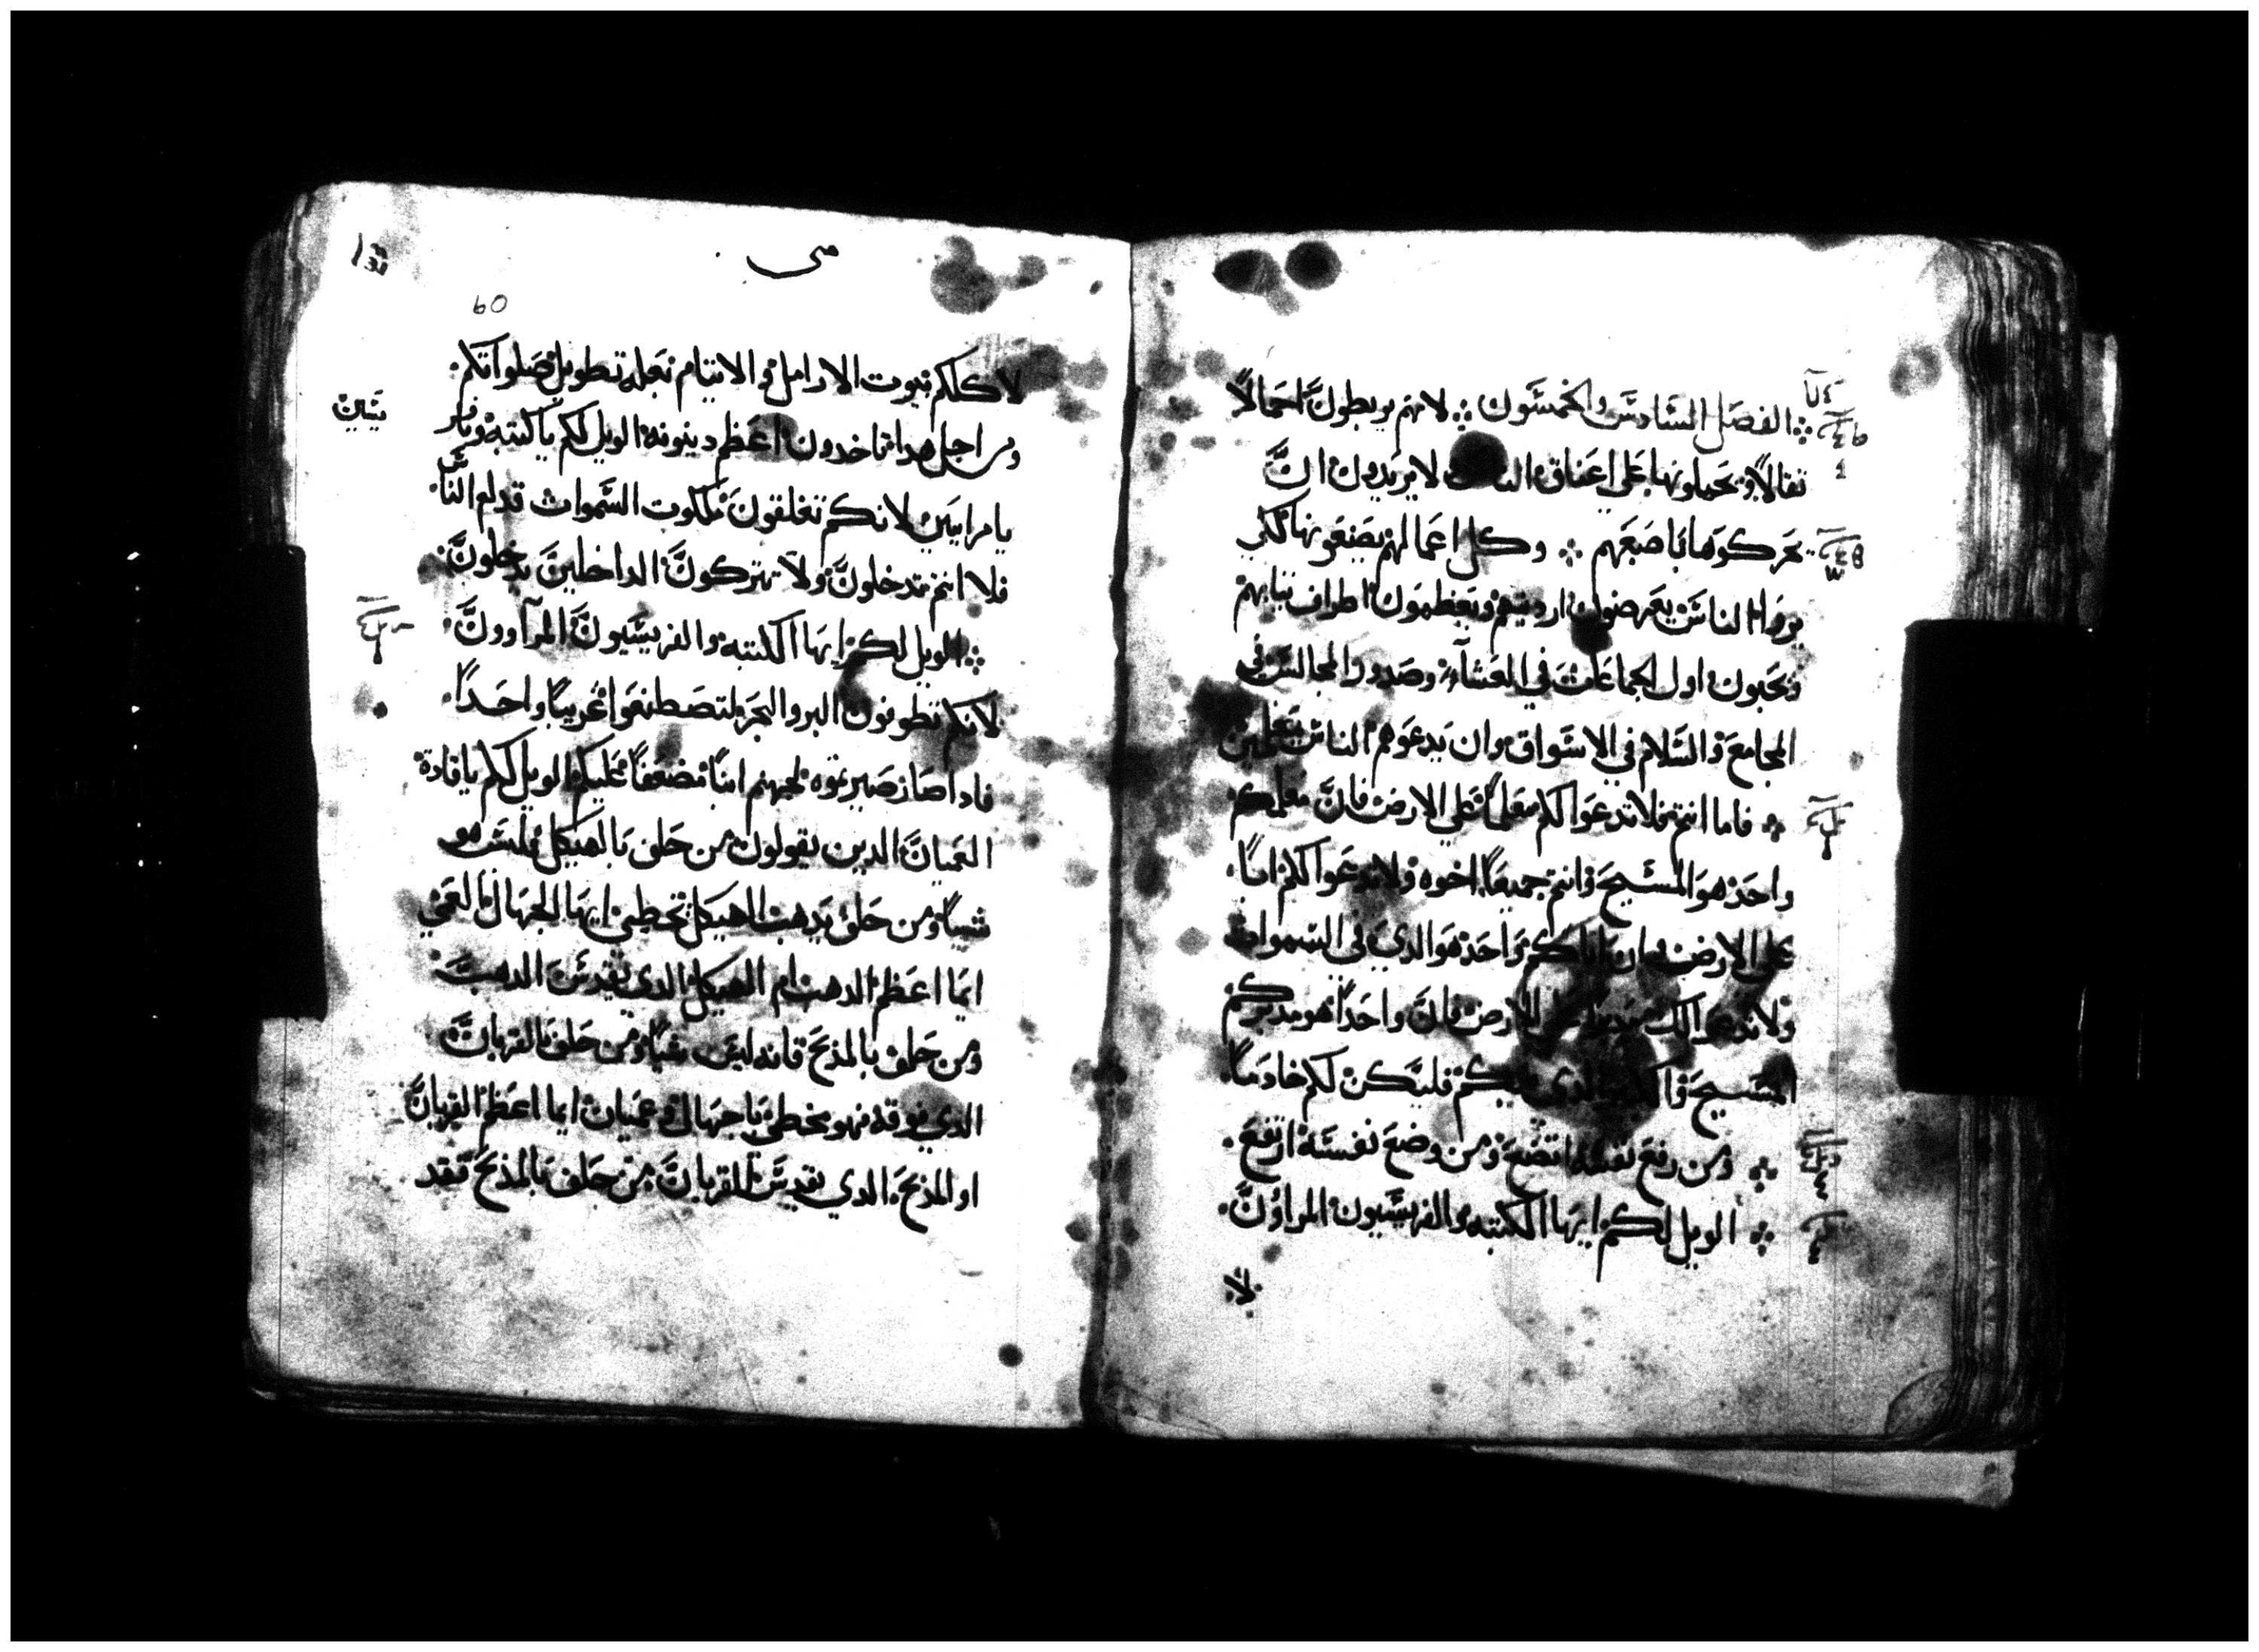 الفصل السادس والخمسون لانهم يربطون احمالاً
ثقالاً ويحملونها على اعناق الناس لا يريدون ان
يحركوها باصبعهم وكل اعمالهم يصنعونها لكي
يروا الناس يعرضون ارديتهم ويعظمون اطراف ثيابهم
ويحبون اول الجماعات في العشاء وصدور المجالس في
المجامع والسلام في الاسواق وان يدعوهم الناس معلمين
فاما انتم فلا تدعوا لكم معلماً على الارض فان معلمكم
واحد هو المسيح وانتم جميعاً اخوه ولا تدعوا لكم اباً
على الارض فان اباكم واحد هو الدي في السموات
ولا تدعوا لكم مدبراً على الارض فان واحداً هو مدبركم
المسيح والكبير الدي فيكم فليكن لكم خادماً
ومن رفع نفسه اتضع ومن وضع نفسه ارتفع
الويل لكم ايها الكتبه والفريسيون المراؤن
لا
متى
60
لاكلكم بيوت الارامل والايتام بعلة تطويل صلواتكم
ومن اجل هدا تاخدون اعظم دينونه الويل لكم يا كتبه وفر
يسيين
يا مرايين لانكم تغلقون ملكوت السموات قدام الناس
فلا انتم تدخلون ولا تتركون الداخلين يدخلون
الويل لكم ايها الكتبه والفريسيون المرآوون
لانكم تطوفون البر والبحر لتصطنعوا غريباً واحداً
فادا صار تصيروه لجهنم ابناً مضعفاً عليكم الويل لكم يا قادة
العميان الدين يقولون من حلف بالهيكل فليس هو
شياً ومن حلف بدهب الهيكل يخطئ ايها الجهال العمي
ايما اعظم الدهب ام الهيكل الدي يقدس الدهب
ومن حلف بالمذبح فانه ليس شياً ومن حلف بالقربان
الدي فوقه فهو يخطئ يا جهال وعميان ايما اعظم القربان
او المذبح الدي يقدس القربان من حلف بالمذبح فقد